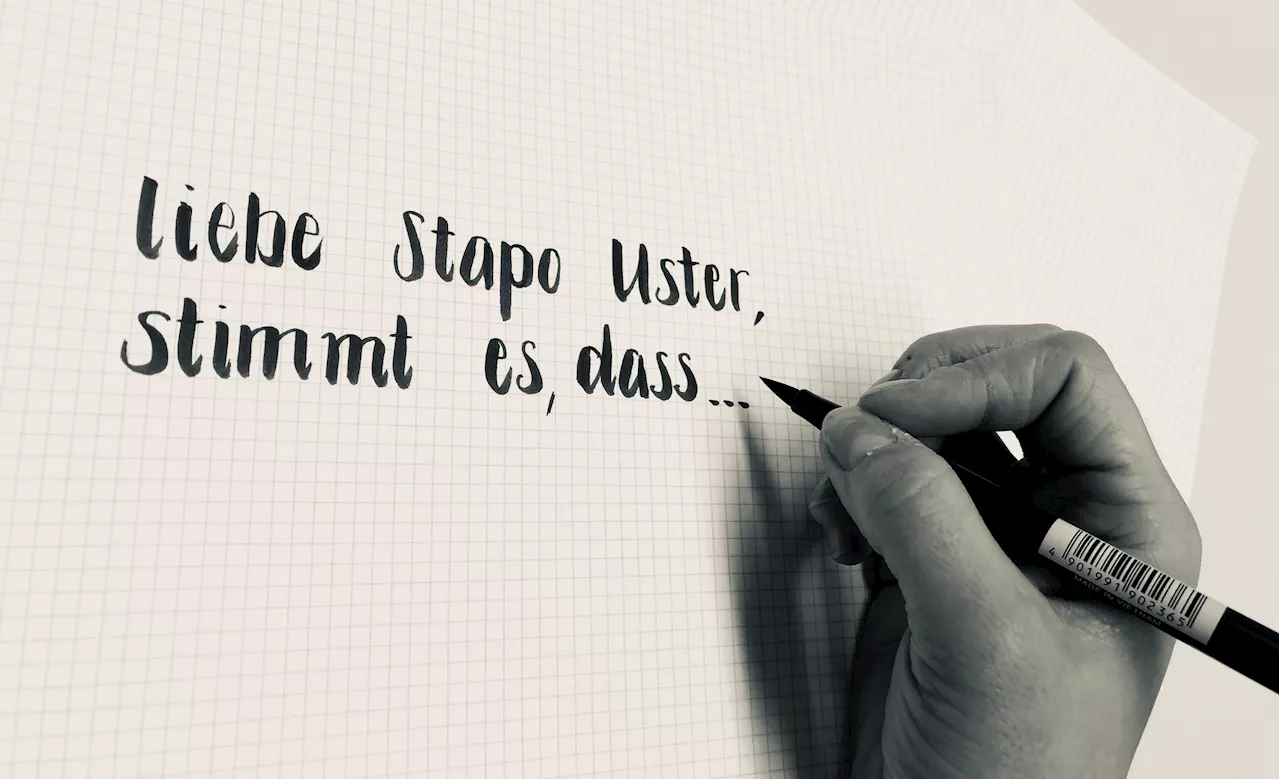 liebe Stapo Uster,
stimmt es, dass...
4 901991 902365
MADE IN VIETNAM